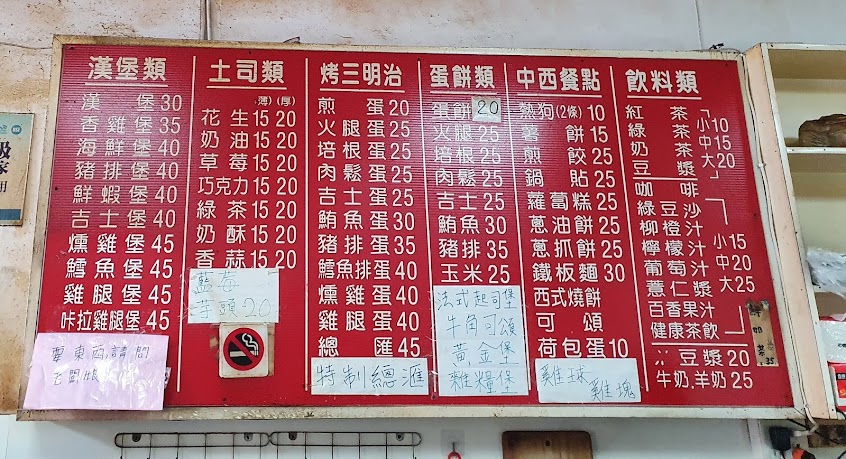 漢堡類
漢堡30
香雞堡35
海鮮堡40
豬排堡40
鮮蝦堡40
吉士堡40
燻雞堡45
鱈魚堡45
雞腿堡45
咔拉雞腿堡45
要東西請問
土司類
(薄)(厚)
花生15 20
奶油15 20
草莓15 20
巧克力15 20
綠茶15 20
奶酥15 20
香蒜15 20
藍莓
芋頭20
烤三明治
煎蛋20
火腿蛋25
培根蛋25
肉鬆蛋25
吉士蛋25
鮪魚蛋30
豬排蛋35
鱈魚排蛋40
燻雞蛋40
雞腿蛋40
總匯45
特制總滙
蛋餅類
蛋餅20
火腿25
培根25
肉鬆25
吉士25
鮪魚30
豬排35
玉米25
法式起司堡
牛角可頌
黃金堡
雜糧堡
中西餐點
熱狗(2條)10
薯餅15
煎餃25
鍋貼25
蘿蔔糕25
蔥油餅25
蔥抓餅25
鐵板麵30
西式燒餅
可頌
荷包蛋10
雞球
雞塊
飲料類
紅茶
綠茶
奶茶
豆漿
小10
中15
大20
咖啡
綠豆沙
柳橙汁
檸檬汁
葡萄汁
薏仁漿
百香果汁
健康茶飲
小15
中20
大25
豆漿20
牛奶.羊奶25
鮮奶茶
35